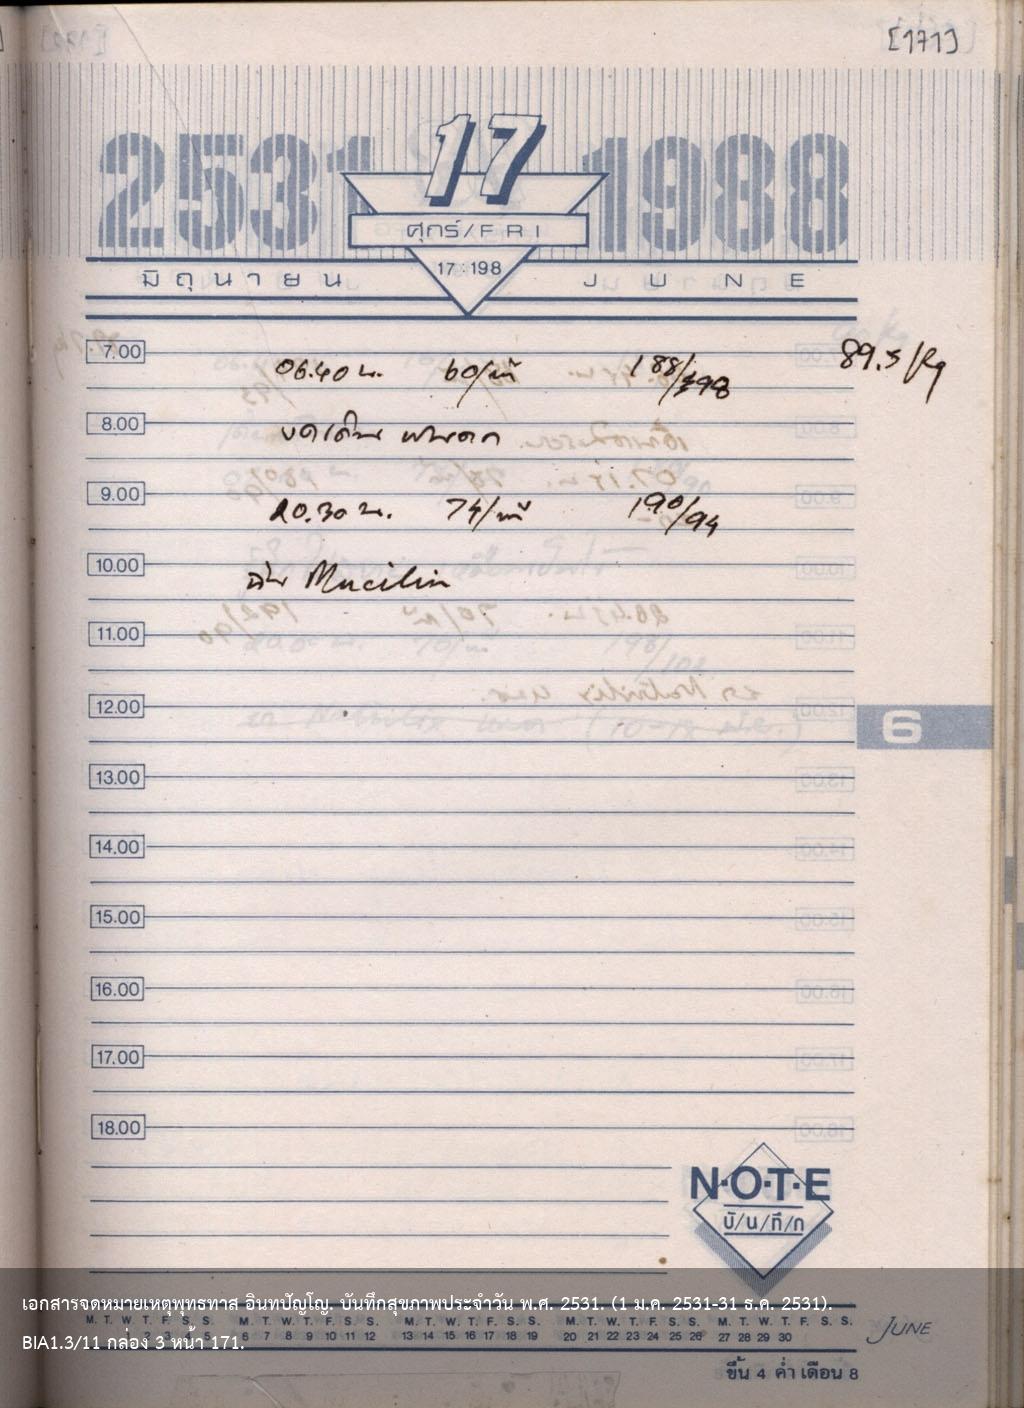 [171]
2531 17 1988
ศุกร์/FRI
17 : 198
มิถุนายน JUNE
7.00
06.40 น. 60/นาที 188/98 89.5 Kg
8.00
งดเดิน
9.00
20.30 น. 74/นาที 190/94
10.00
ฉัน Mucilin
11.00
12.00
6
13.00
14.00
15.00
16.00
17.00
18.00
N·O·T·E
บั/น/ทึ/ก
เอกสารจดหมายเหตุพุทธทาส อินทปัญโญ. บันทึกสุขภาพประจำวัน พ.ศ. 2531. (1 ม.ค. 2531-31 ธ.ค. 2531).
M. T. W. T. F. S. S. M. T. W. T. F. S. S. M. T. W. T. F. S. S. M. T. W. T. F. S. S. M. T. W. T. F. S. S.
1 2 3 4 5 6 7 8 9 10 11 12 13 14 15 16 17 18 19 20 21 22 23 24 25 26 27 28 29 30
JUNE
BIA1.3/11 กล่อง 3 หน้า 171.
ขึ้น 4 ค่ำ เดือน 8